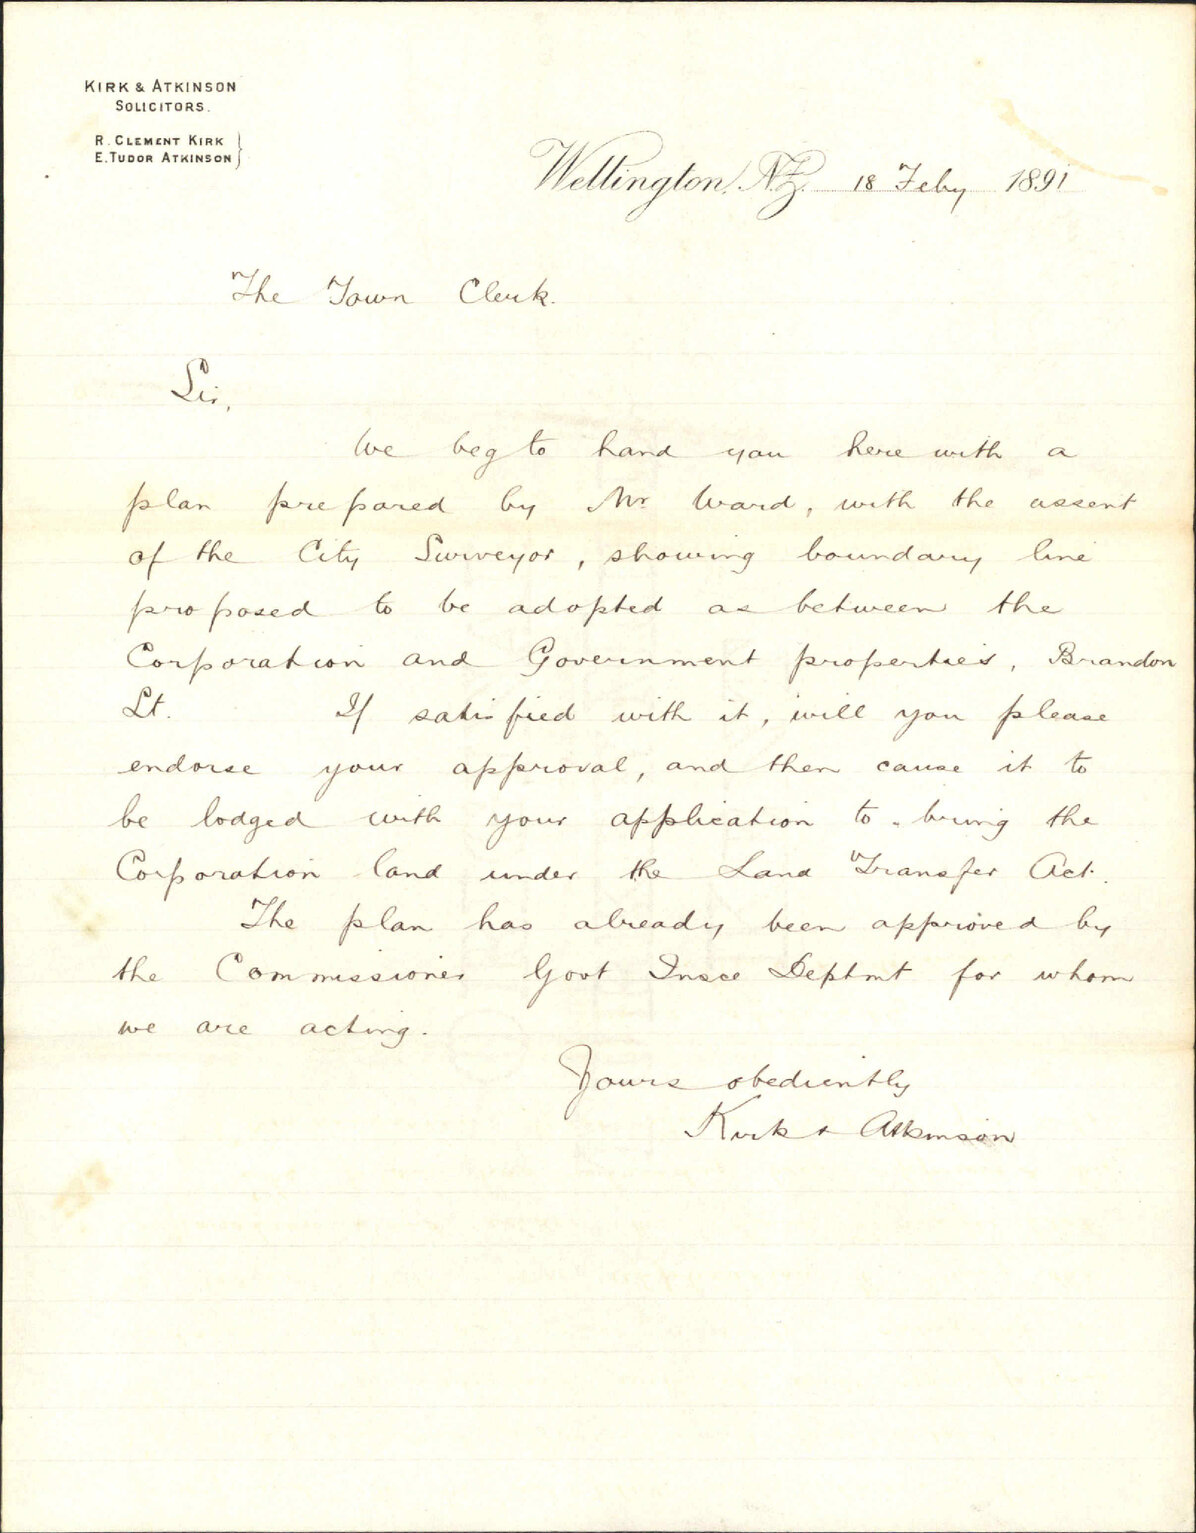 KIRK & ATKINSON
SOLICITORS.
R. CLEMENT KIRK }
E. TUDOR ATKINSON }
Wellington, N.Z. 18 Feby 1891
The Town Clerk.
Sir,
We beg to hand you here with a
plan prepared by Mr Ward, with the assent
of the City Surveyor, showing boundary line
proposed to be adopted as between the
Corporation and Government properties, Brandon
St. If satisfied with it, will you please
endorse your approval, and then cause it to
be lodged with your application to bring the
Corporation land under the Land Transfer Act.
The plan has already been approved by
the Commissioner Govt Insce Deptmt for whom
we are acting.
Yours obediently
Kirk & Atkinson